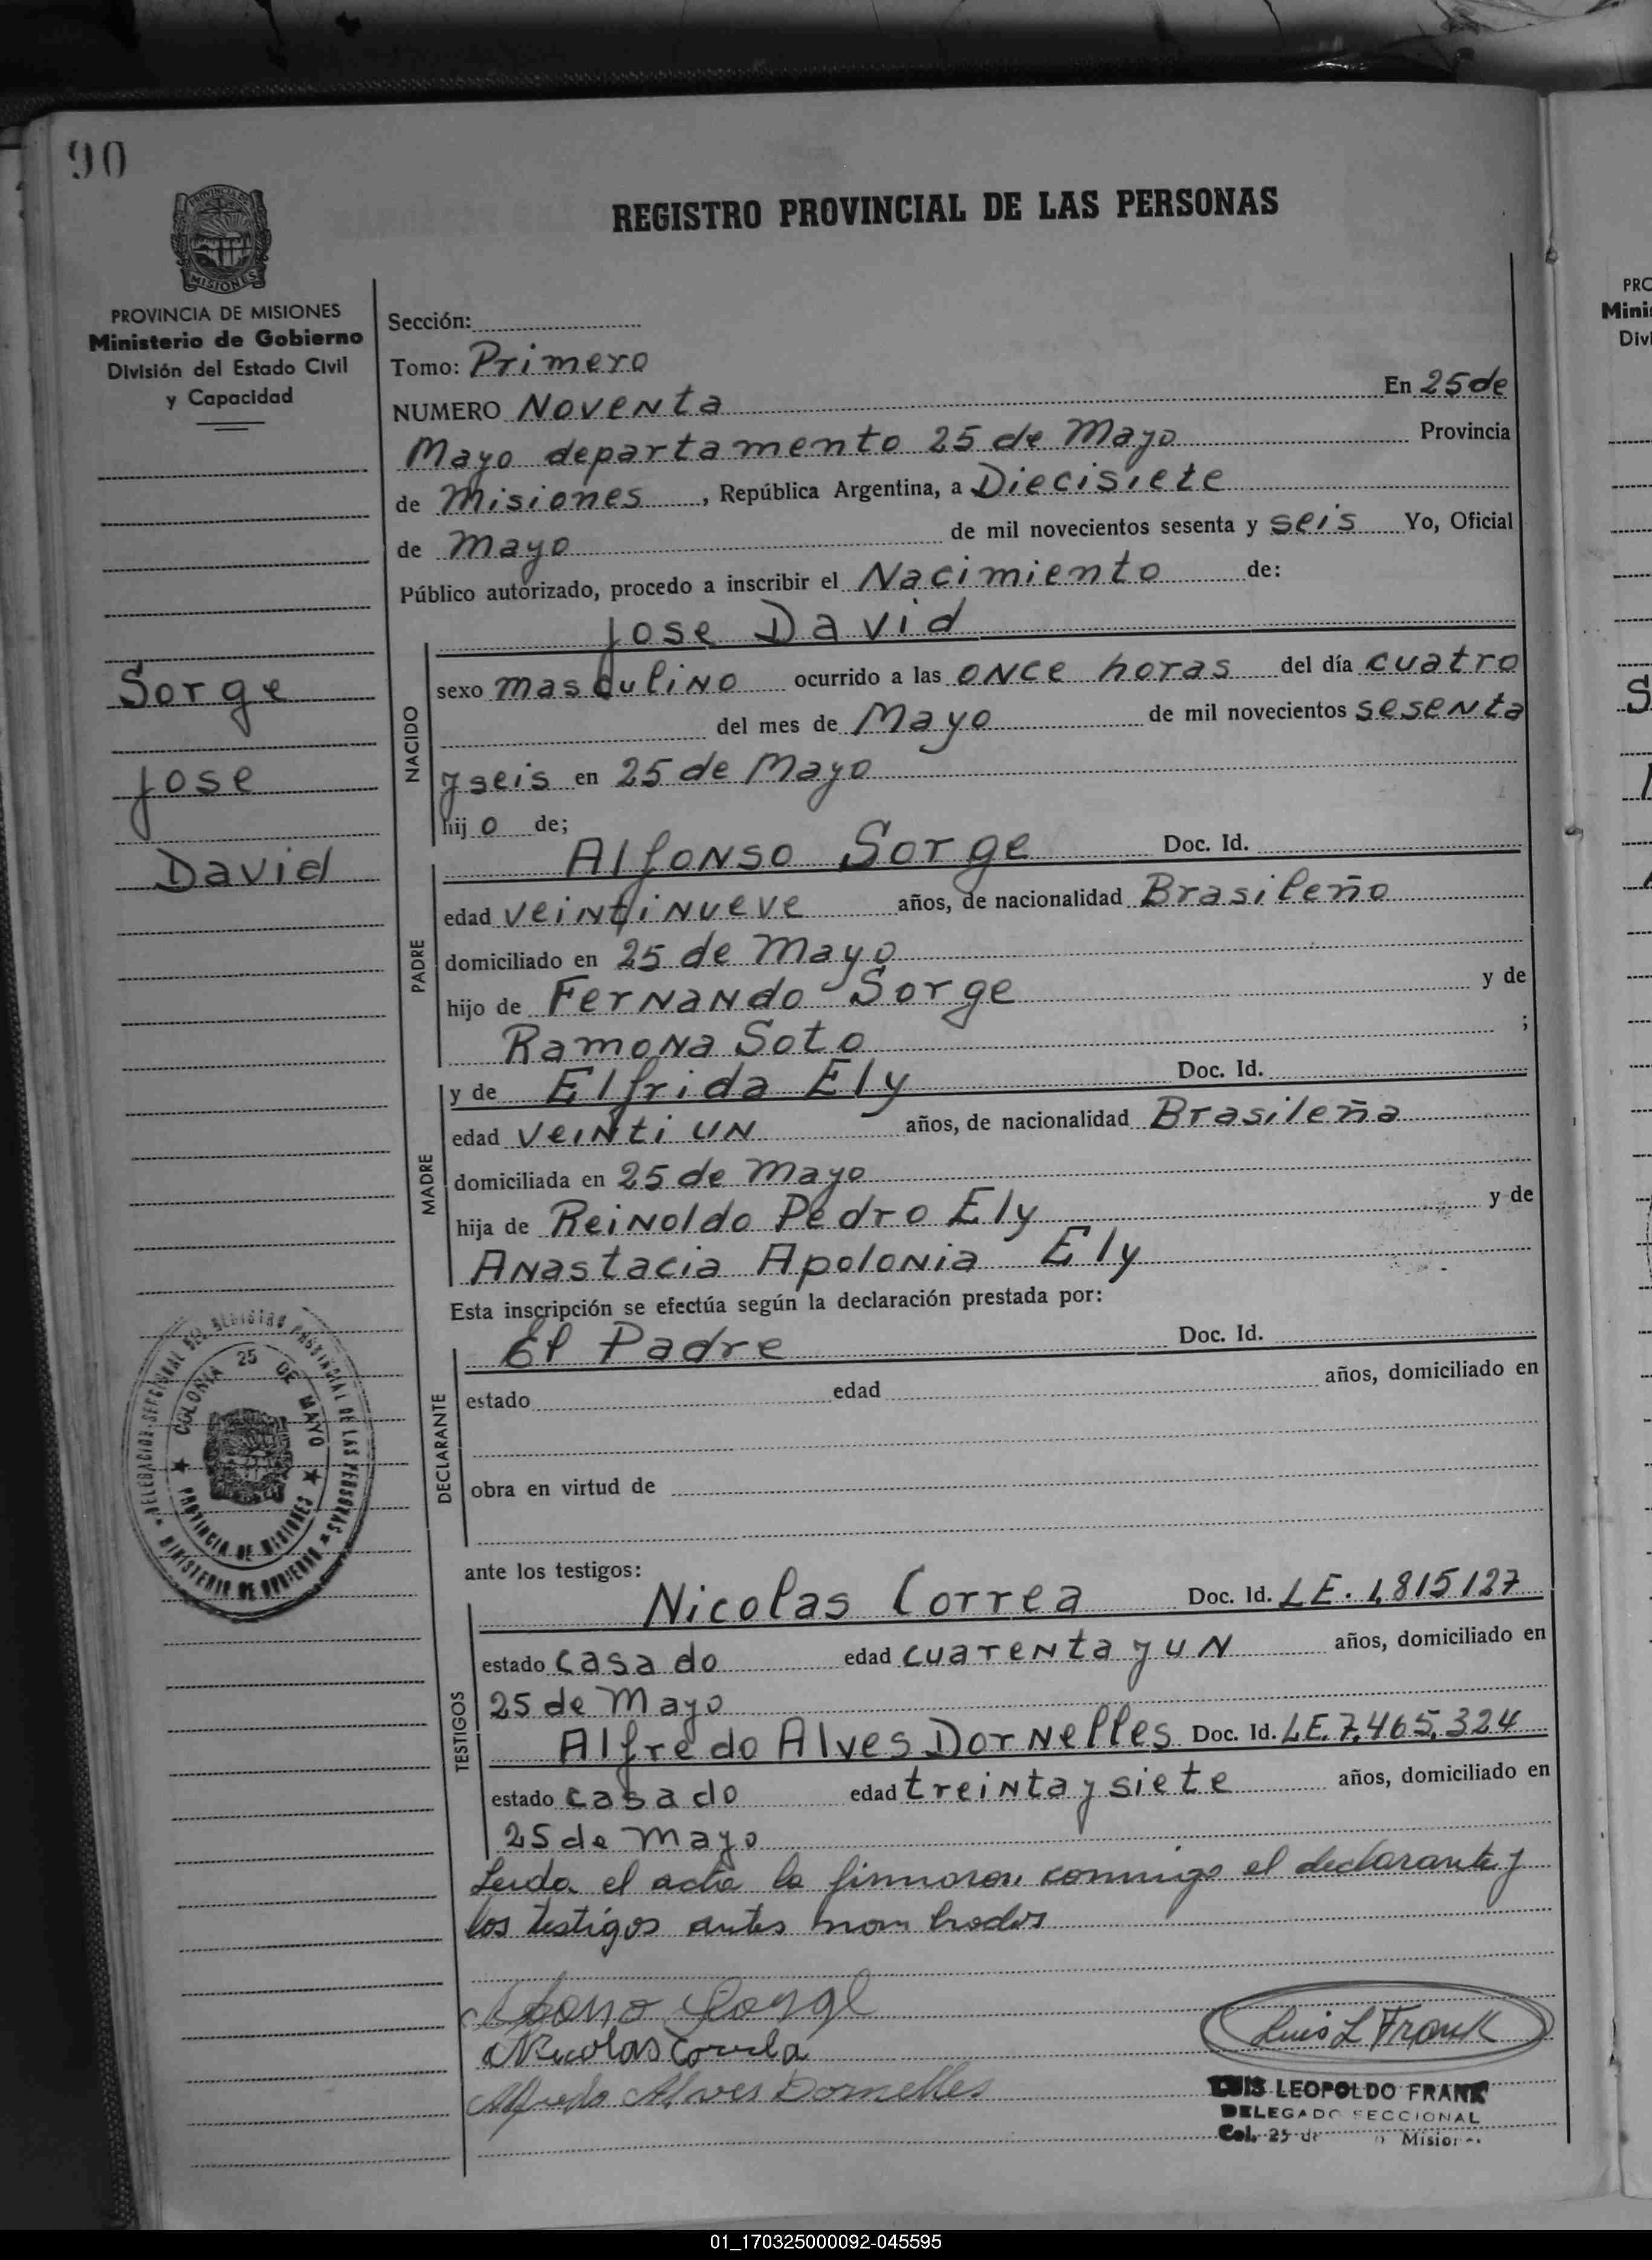 90
REGISTRO PROVINCIAL DE LAS PERSONAS
PROVINCIA DE MISIONES
Ministerio de Gobierno
División del Estado Civil
y Capacidad
Sorge
Jose
David
Sección:
Tomo: Primero
NUMERO Noventa En 25 de
Mayo departamento 25 de Mayo Provincia
de Misiones, República Argentina, a Diecisiete
de Mayo de mil novecientos sesenta y seis Yo, Oficial
Público autorizado, procedo a inscribir el Nacimiento de:
Jose David
NACIDO
sexo masculino ocurrido a las once horas del día cuatro
del mes de Mayo de mil novecientos sesenta
y seis en 25 de Mayo
hijo de;
Alfonso Sorge Doc. Id.
PADRE
edad veintinueve años, de nacionalidad Brasileño
domiciliado en 25 de Mayo
hijo de Fernando Sorge y de
Ramona Soto ;
y de Elfrida Ely Doc. Id.
MADRE
edad veinti un años, de nacionalidad Brasileña
domiciliada en 25 de Mayo
hija de Reinoldo Pedro Ely y de
Anastacia Apolonia Ely
Esta inscripción se efectúa según la declaración prestada por:
El Padre Doc. Id.
DECLARANTE
estado edad años, domiciliado en
obra en virtud de
ante los testigos:
Nicolas Correa Doc. Id. LE. 1,815127
TESTIGOS
estado casado edad cuarenta y un años, domiciliado en
25 de Mayo
Alfredo Alves Dornelles Doc. Id. LE. 7.465.324
estado casado edad treinta y siete años, domiciliado en
25 de Mayo
Leida el acta la firmaron conmigo el declarante y
los testigos antes nombrados
Sorge
Nicolas Correa
Alfredo Alves Dornelles
Luis L Frank
LUIS LEOPOLDO FRANK
DELEGADO SECCIONAL
Col. 25 de Misiones
DELEGACION SECCIONAL DEL REGISTRO PROVINCIAL DE LAS PERSONAS
MINISTERIO DE GOBIERNO
COLONIA 25 DE MAYO
PROVINCIA DE MISIONES
PROVINCIA DE
MISIONES
PRO
Minis
Divi
S
01_170325000092-045595